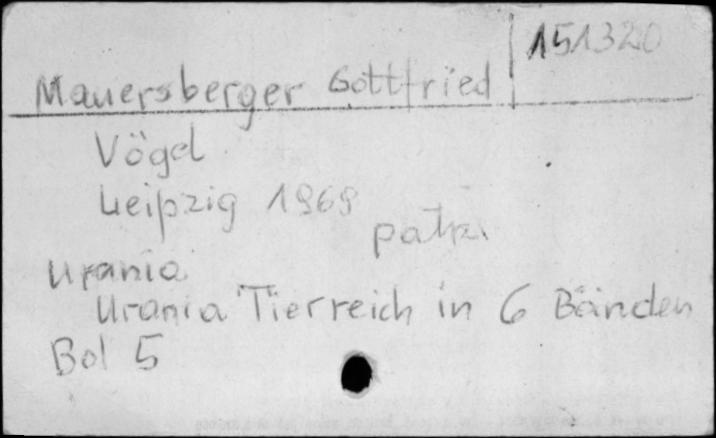 151320
Mauersberger Gottfried
Vögel
Leipzig 1969
Urania
Urania Tierreich in 6 Bänden
Bd 5